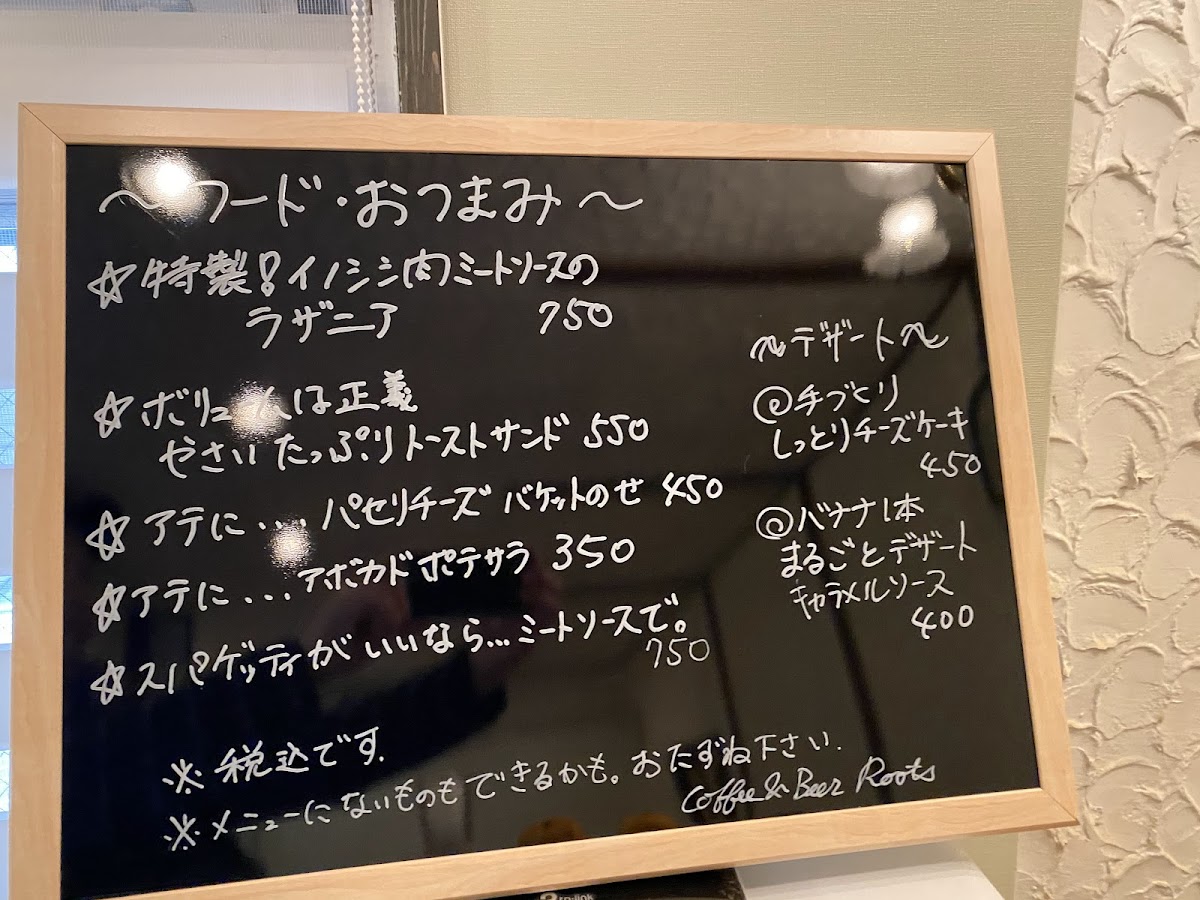 ～フード・おつまみ～
☆特製!イノシシ肉ミートソースの
ラザニア 750
☆ボリュームは正義
やさいたっぷりトーストサンド 550
☆アテに...パセリチーズバケットのせ 450
☆アテに...アボカドポテサラ 350
☆スパゲッティがいいなら...ミートソースで。
750
～デザート～
◎手づくり
しっとりチーズケーキ
450
◎バナナ1本
まるごとデザート
キャラメルソース
400
※税込です.
※メニューにないものもできるかも。おたずね下さい.
Coffee & Beer Roots